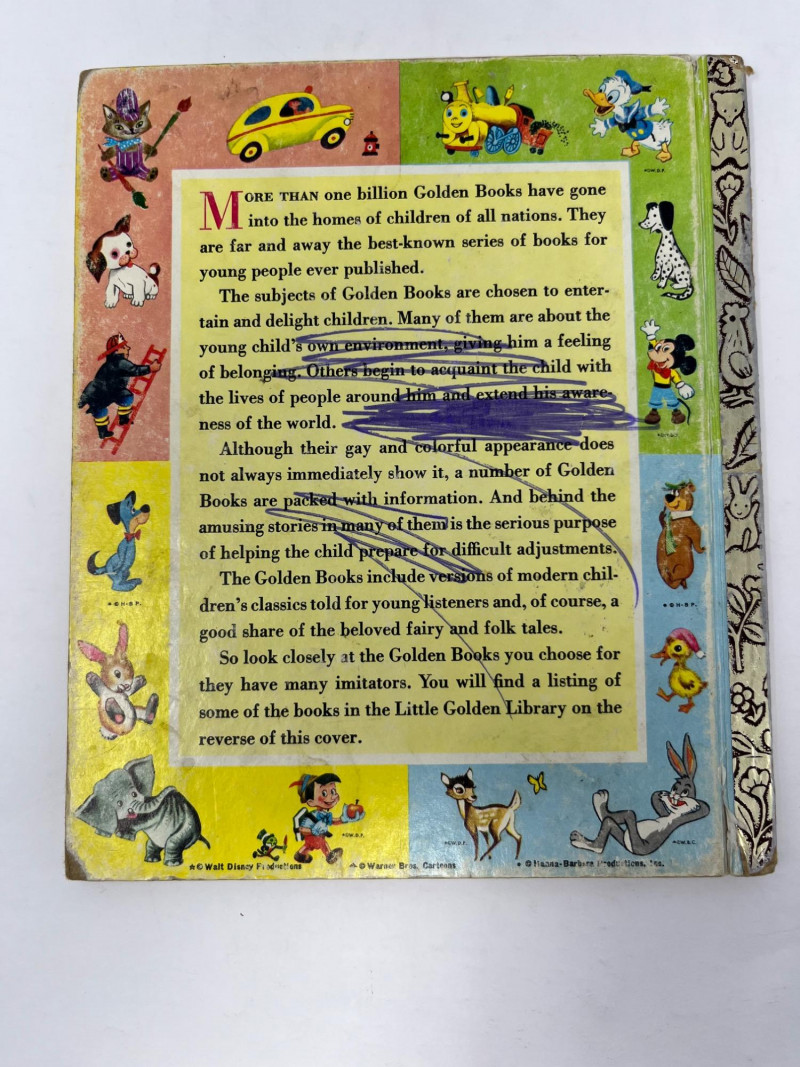 ©W.D.P.
MORE THAN one billion Golden Books have gone
into the homes of children of all nations. They
are far and away the best-known series of books for
young people ever published.
The subjects of Golden Books are chosen to enter-
tain and delight children. Many of them are about the
young child's own environment, giving him a feeling
of belonging. Others begin to acquaint the child with
the lives of people around him and extend his aware-
ness of the world.
Although their gay and colorful appearance does
not always immediately show it, a number of Golden
Books are packed with information. And behind the
amusing stories in many of them is the serious purpose
of helping the child prepare for difficult adjustments.
The Golden Books include versions of modern chil-
dren's classics told for young listeners and, of course, a
good share of the beloved fairy and folk tales.
So look closely at the Golden Books you choose for
they have many imitators. You will find a listing of
some of the books in the Little Golden Library on the
reverse of this cover.
•©H-B P.
•©H-B P.
©W.D.P.
©W.D.P.
©W.B.C.
★©Walt Disney Productions
▲©Warner Bros. Cartoons
•©Hanna-Barbera Productions, Inc.